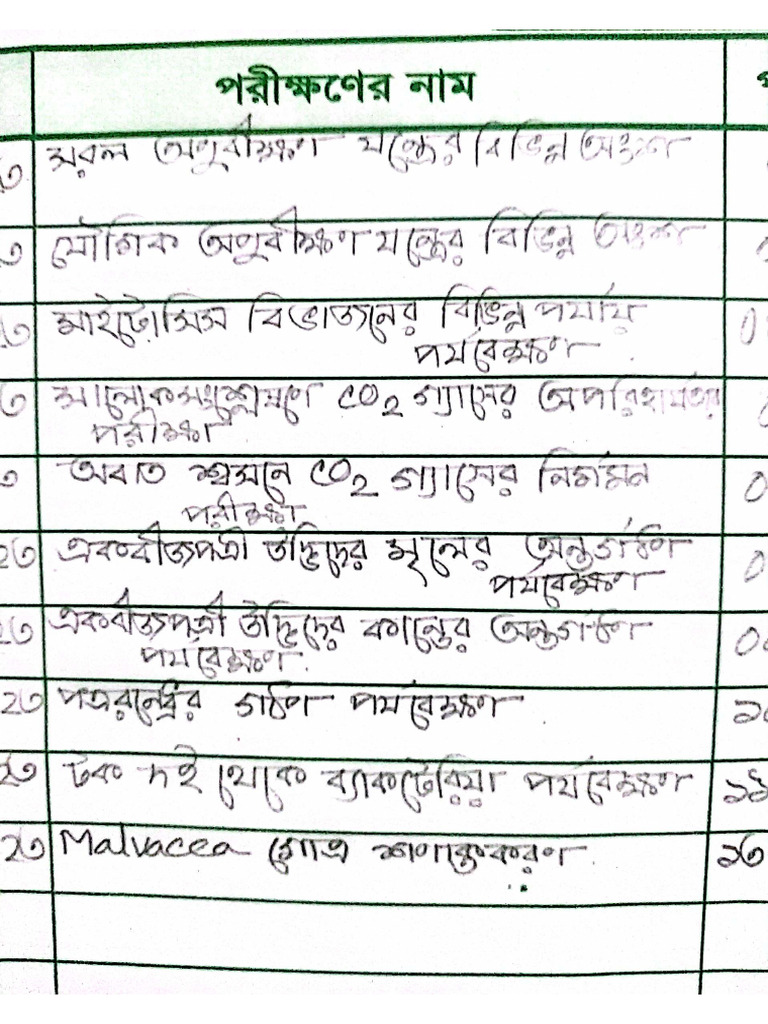 পরীক্ষণের নাম
সরল অণুবীক্ষণ যন্ত্রের বিভিন্ন অংশ
যৌগিক অণুবীক্ষণ যন্ত্রের বিভিন্ন অংশ
মাইটোসিস বিভাজনের বিভিন্ন পর্যায়
পর্যবেক্ষণ
সালোকসংশ্লেষণে CO2 গ্যাসের অপরিহার্যতার
পরীক্ষা
অবাত শ্বসনে CO2 গ্যাসের নির্গমন
পরীক্ষা
২৩ একবীজপত্রী উদ্ভিদের মূলের অন্তর্গঠণ
পর্যবেক্ষণ
২৩ একবীজপত্রী উদ্ভিদের কান্ডের অন্তর্গঠণ
পর্যবেক্ষণ
২৩ পত্ররন্ধ্রের গঠণ পর্যবেক্ষণ
২৩ টক দই থেকে ব্যাকটেরিয়া পর্যবেক্ষণ
২৩ Malvacea গোত্র শণাক্তকরণ ১৩